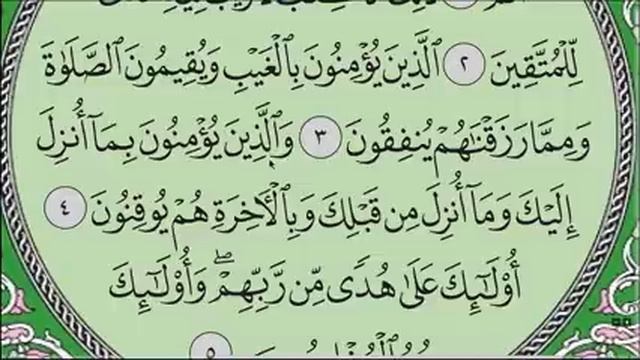 لِّلْمُتَّقِينَ ٢ ٱلَّذِينَ يُؤْمِنُونَ بِٱلْغَيْبِ وَيُقِيمُونَ ٱلصَّلَوٰةَ
وَمِمَّا رَزَقْنَٰهُمْ يُنفِقُونَ ٣ وَٱلَّذِينَ يُؤْمِنُونَ بِمَآ أُنزِلَ
إِلَيْكَ وَمَآ أُنزِلَ مِن قَبْلِكَ وَبِٱلْأَخِرَةِ هُمْ يُوقِنُونَ ٤
أُوْلَٰٓئِكَ عَلَىٰ هُدًى مِّن رَّبِّهِمْ ۖ وَأُوْلَٰٓئِكَ
٥